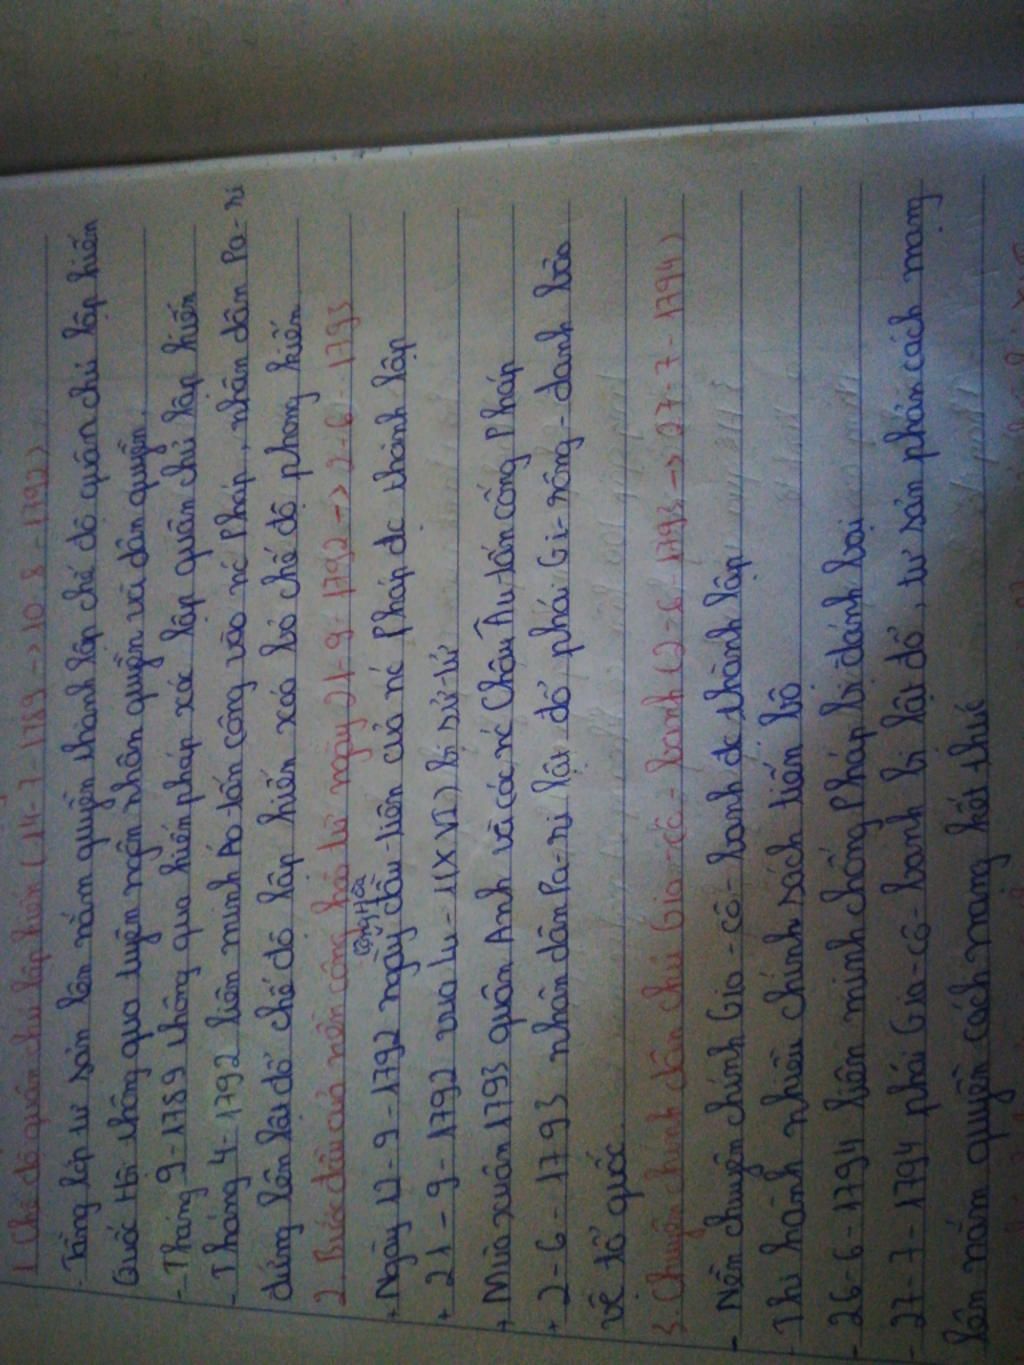 1. Chế độ quân chủ lập hiến (14-7-1789 -> 10-8-1792)
- Tầng lớp tư sản lên nắm quyền thành lập chế độ quân chủ lập hiến
Quốc Hội thông qua tuyên ngôn nhân quyền và dân quyền
- Tháng 9-1789 thông qua hiến pháp xác lập quân chủ lập hiến
- Tháng 4-1792 liên minh Áo tấn công vào nc Pháp, nhân dân Pa-ri
đứng lên lật đổ chế độ lập hiến xóa bỏ chế độ phong kiến
2. Bước đầu của nền cộng hòa từ ngày 21-9-1792 -> 2-6-1793
cộng hòa
+ Ngày 12-9-1792 ngày đầu tiên của nc Pháp đc thành lập
+ 21-9-1792 vua Lu-i (XVI) bị xử tử
+ Mùa xuân 1793 quân Anh và các nc Châu Âu tấn công Pháp
+ 2-6-1793 nhân dân Pa-ri lật đổ phái Gi-rông-danh bảo
vệ tổ quốc
3. Chuyên chính dân chủ Gia-cô-banh (2-6-1793 -> 27-7-1794)
- Nền chuyên chính Gia-cô-banh đc thành lập
- Thi hành nhiều chính sách tiến bộ
- 26-6-1794 liên minh chống Pháp bị đánh bại
- 27-7-1794 phái Gia-cô-banh bị lật đổ, tư sản phản cách mạng
lên nắm quyền cách mạng kết thúc